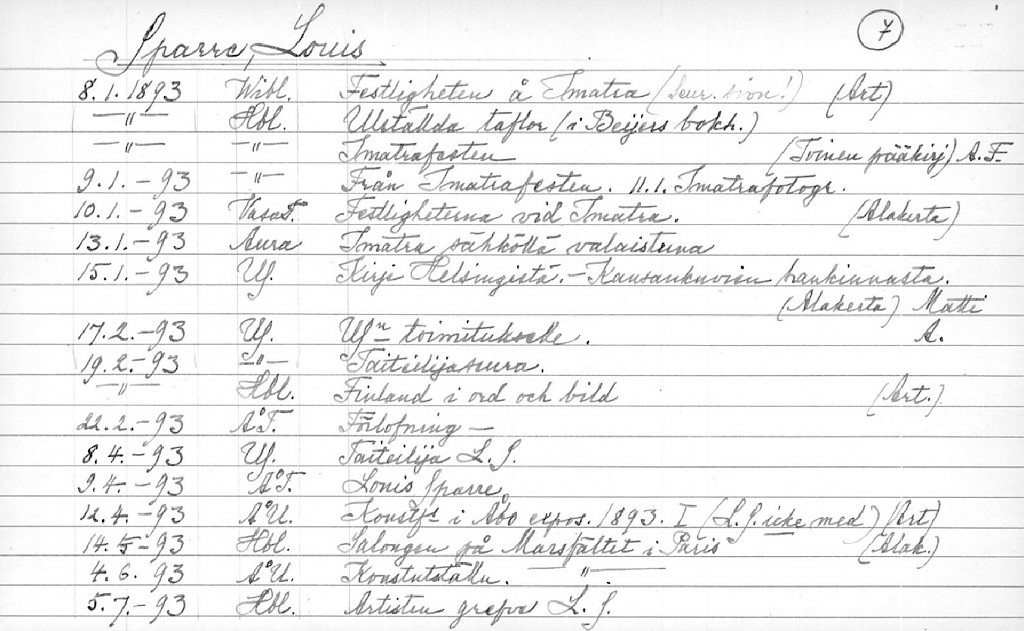 7
Sparre, Louis
8.1.1893 Wibl. Festligheten å Imatra (Seur. sivu!) (Art)
—"— Hbl. Utställda taflor (i Beijers bokh.)
—"— —"— Imatrafesten (Toinen pääkirj) A.F.
9.1.-93 —"— Från Imatrafesten. 11.1. Imatrafotogr.
10.1.-93 VasaT. Festligheterna vid Imatra. (Alakerta)
13.1.-93 Aura Imatra sähköllä valaistuna
15.1.-93 Uf. Kirje Helsingistä.- Kansankuvien hankinnasta.
(Alakerta) Matti
17.2.-93 Uf. Uf:n toimitukselle. A.
19.2.-93 —"— Taiteilijaseura.
—"— Hbl. Finland i ord och bild (Art.)
22.2.-93 Å.T. Förlofning —
8.4.-93 Uf. Taiteilija L.S.
9.4.-93 Å.T. Louis Sparre
12.4.-93 Å.U. Konstfs i Åbo expos. 1893. I (L.S. icke med) (Art)
14.5-93 Hbl. Salongen på Marsfältet i Paris (Alak.)
4.6.93 Å.U. Konstutställn. —"—
5.7.-93 Hbl. Artisten grefve L.S.